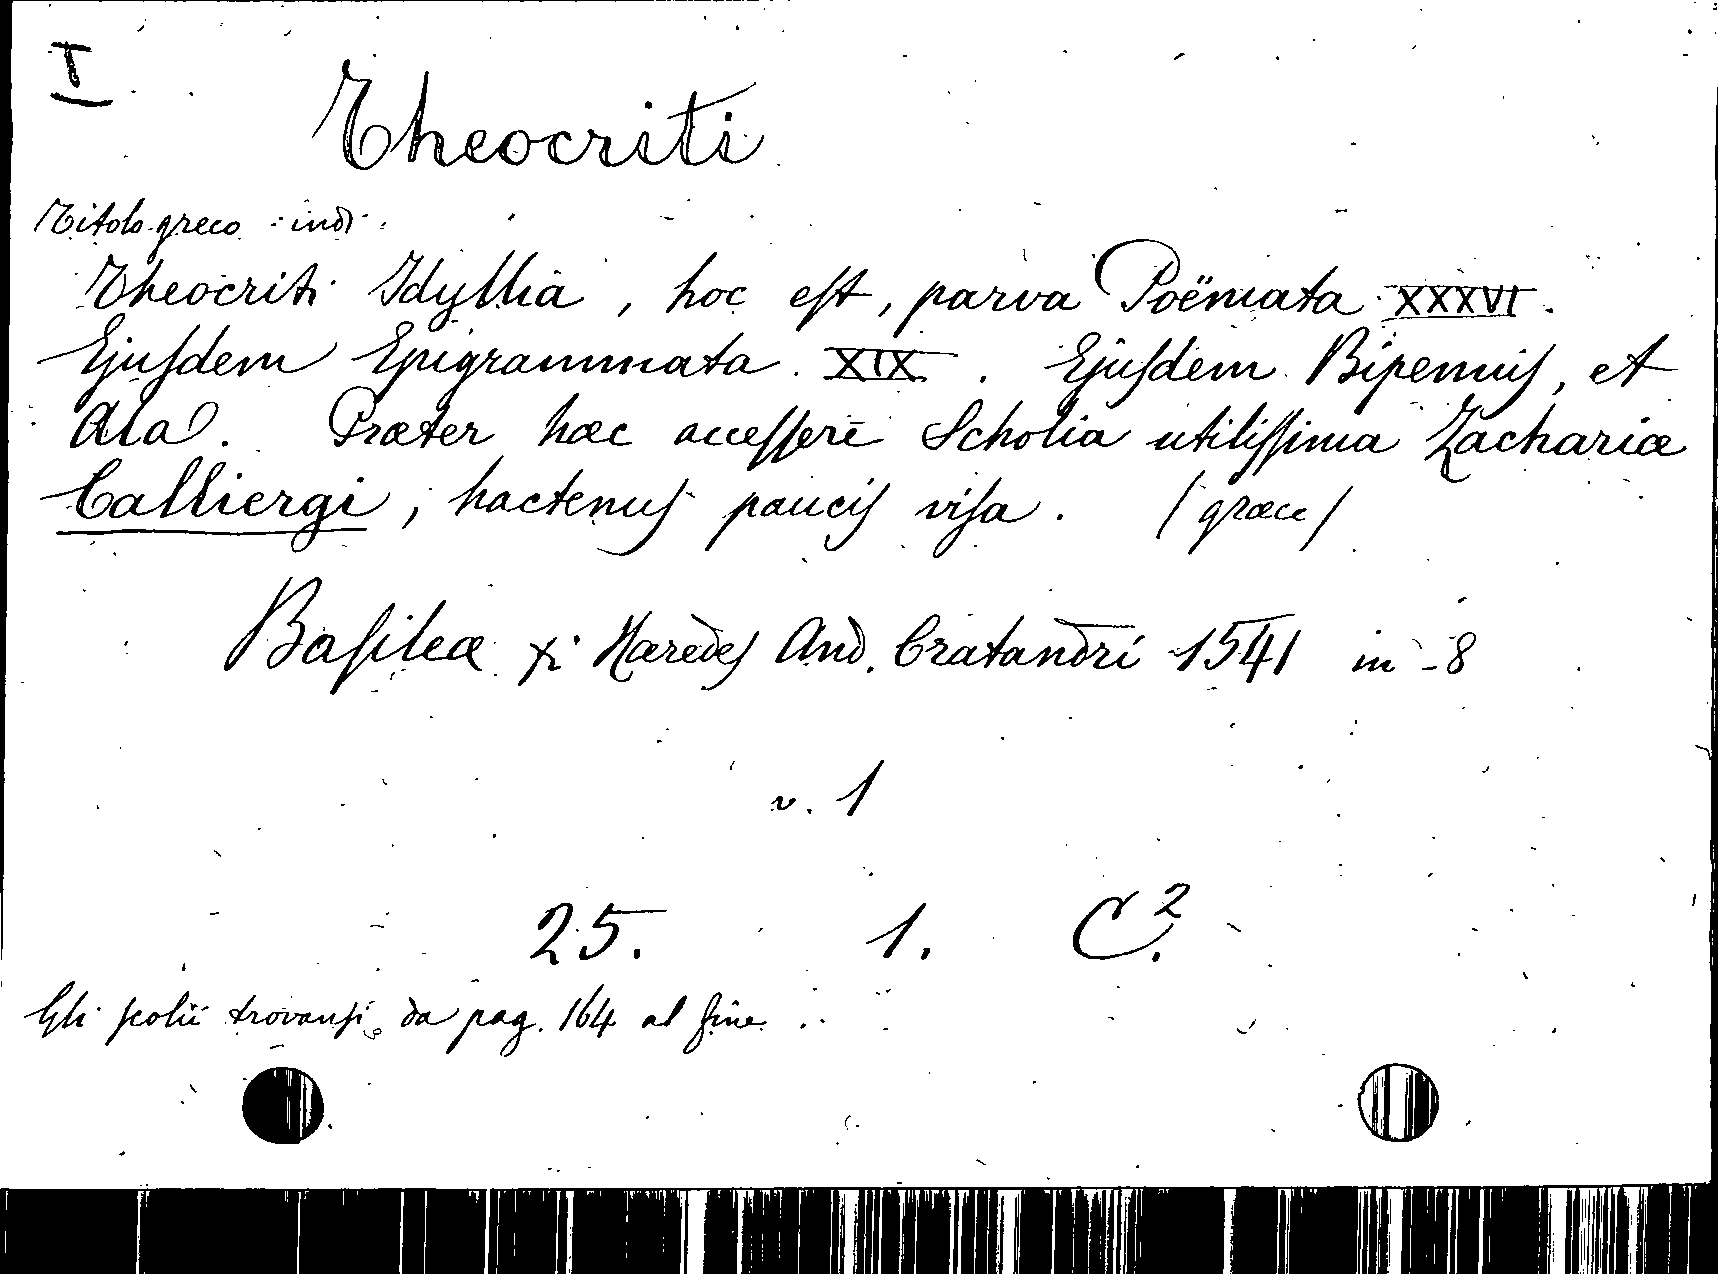 I
Theocriti
Titolo greco indi
Theocriti Idyllia, hoc eſt, parva Poëmata XXXVI.
Ejuſdem Epigrammata XIX. Ejuſdem Bipennis, et
Ala. Præter hæc acceſſere Scholia utiliſſima Zachariæ
Calliergi, hactenus paucis viſa. (græce)
Baſileæ Hæredes And. Cratandri 1541 in-8
v. 1
25. 1. C.²
Gli ſcolii trovanſi da pag. 164 al fine.